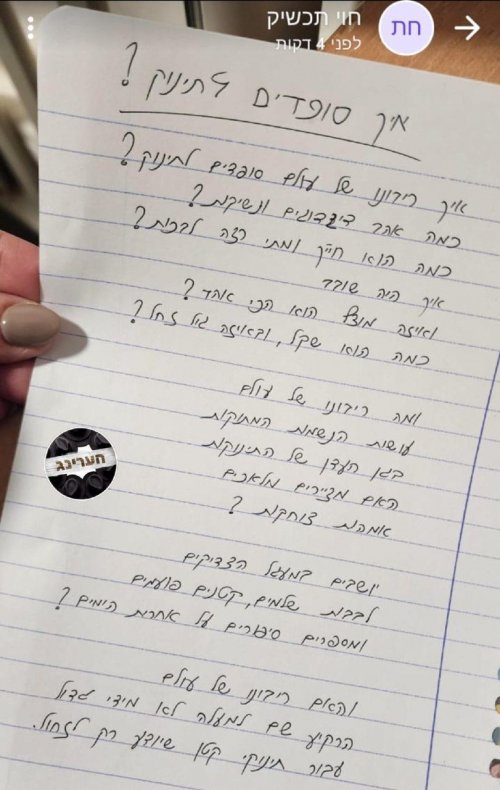 חוי תכשיק
לפני 4 דקות
חת
איך סופדים לתינוק?
איך ריבונו של עולם סופדים לתינוק?
כמה אהב דיגדוגים ונשיקות?
כמה הוא חייך ומתי רצה לבכות?
איך היה שובב
ואיזה מוצץ הוא הכי אהב?
כמה הוא שקל, ובאיזה גיל זחל?
ומה ריבונו של עולם
עושות הנשמות המתוקות
בגן העדן של התינוקות
האם מציירים מלאכים
אמהות צוחקות?
יושבים במעגל הצדיקים
לבבות שלמים, קטנים פועמים
ומספרים סיפורים על אחרית הימים?
והאם ריבונו של עולם
הרקיע שם למעלה לא מידי גדול
עבור תינוקי קטן שיודע רק לזחול.
חערינג